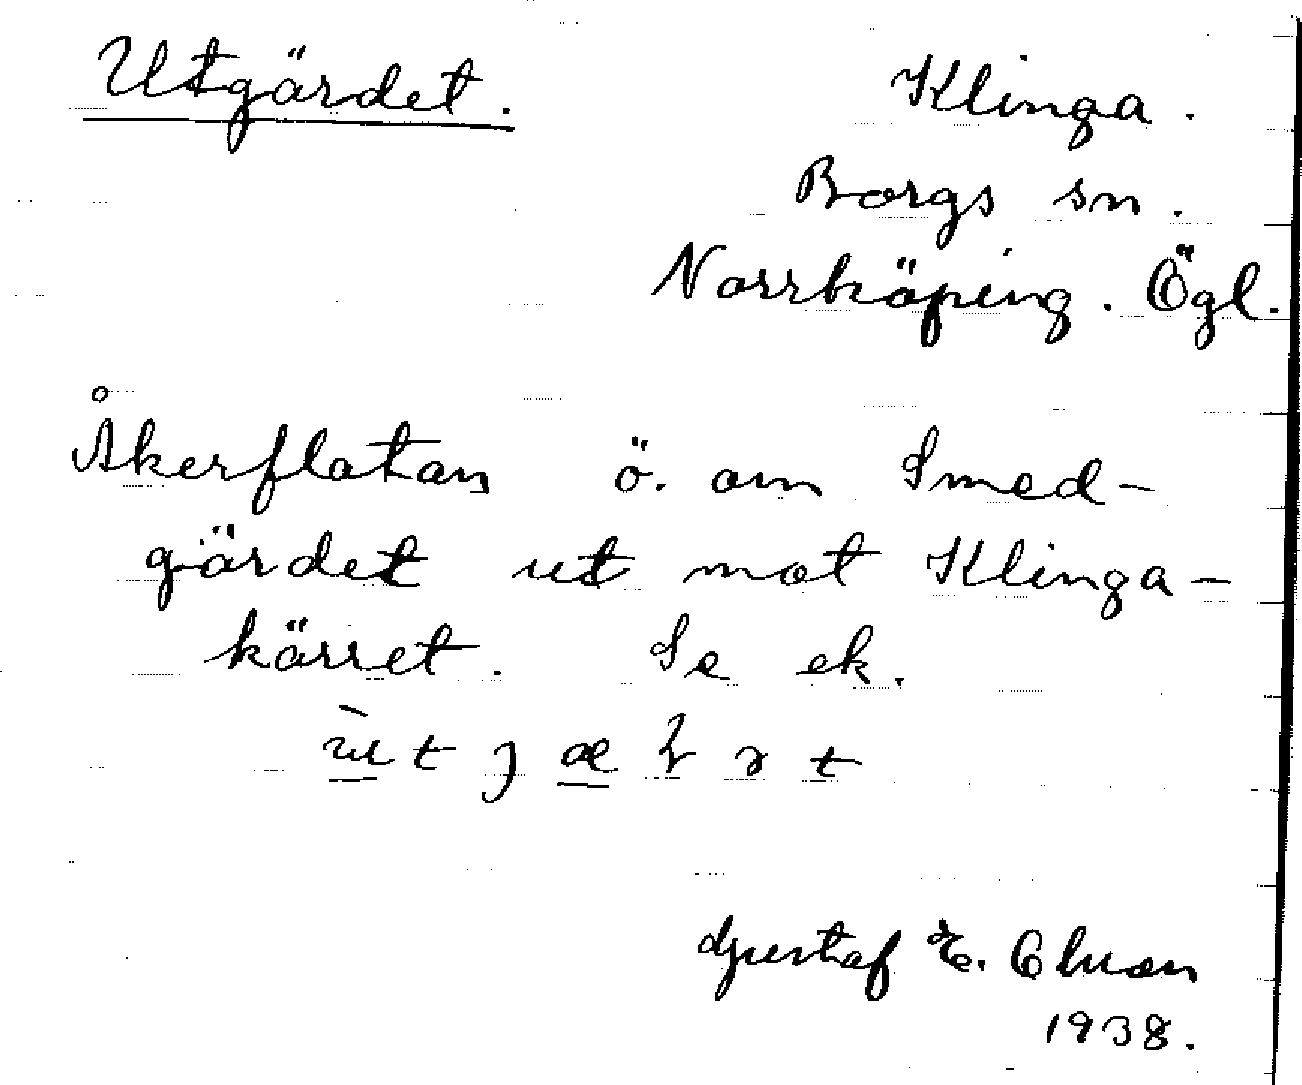 Utgärdet.
Klinga.
Borgs sn.
Norrköping. Ögl.
Åkerflatan ö. om Smed-
gärdet ut mot Klinga-
kärret. Se ek.
Gustaf E.
1938.